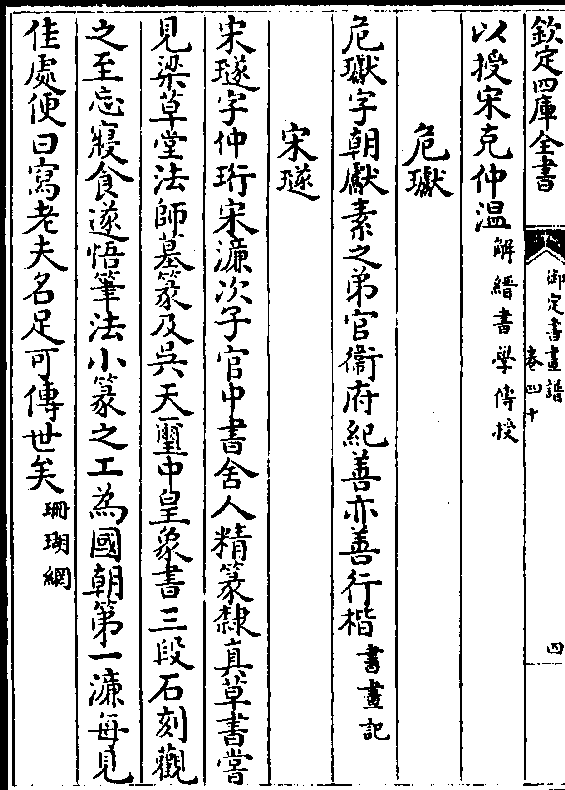 欽定四庫全書
御定書畫譜
卷四十
四
以授宋克仲温解縉書學傳授
危瓛
危瓛字朝獻素之弟官衞府紀善亦善行楷書畫記
宋璲
宋璲字仲珩宋濓次子官中書舍人精篆隸真草書嘗
見梁草堂法師墓篆及吳天璽中皇象書三段石刻觀
之至忘寢食遂悟筆法小篆之工為國朝第一濓每見
佳處便曰寫老夫名足可傳世矣珊瑚網